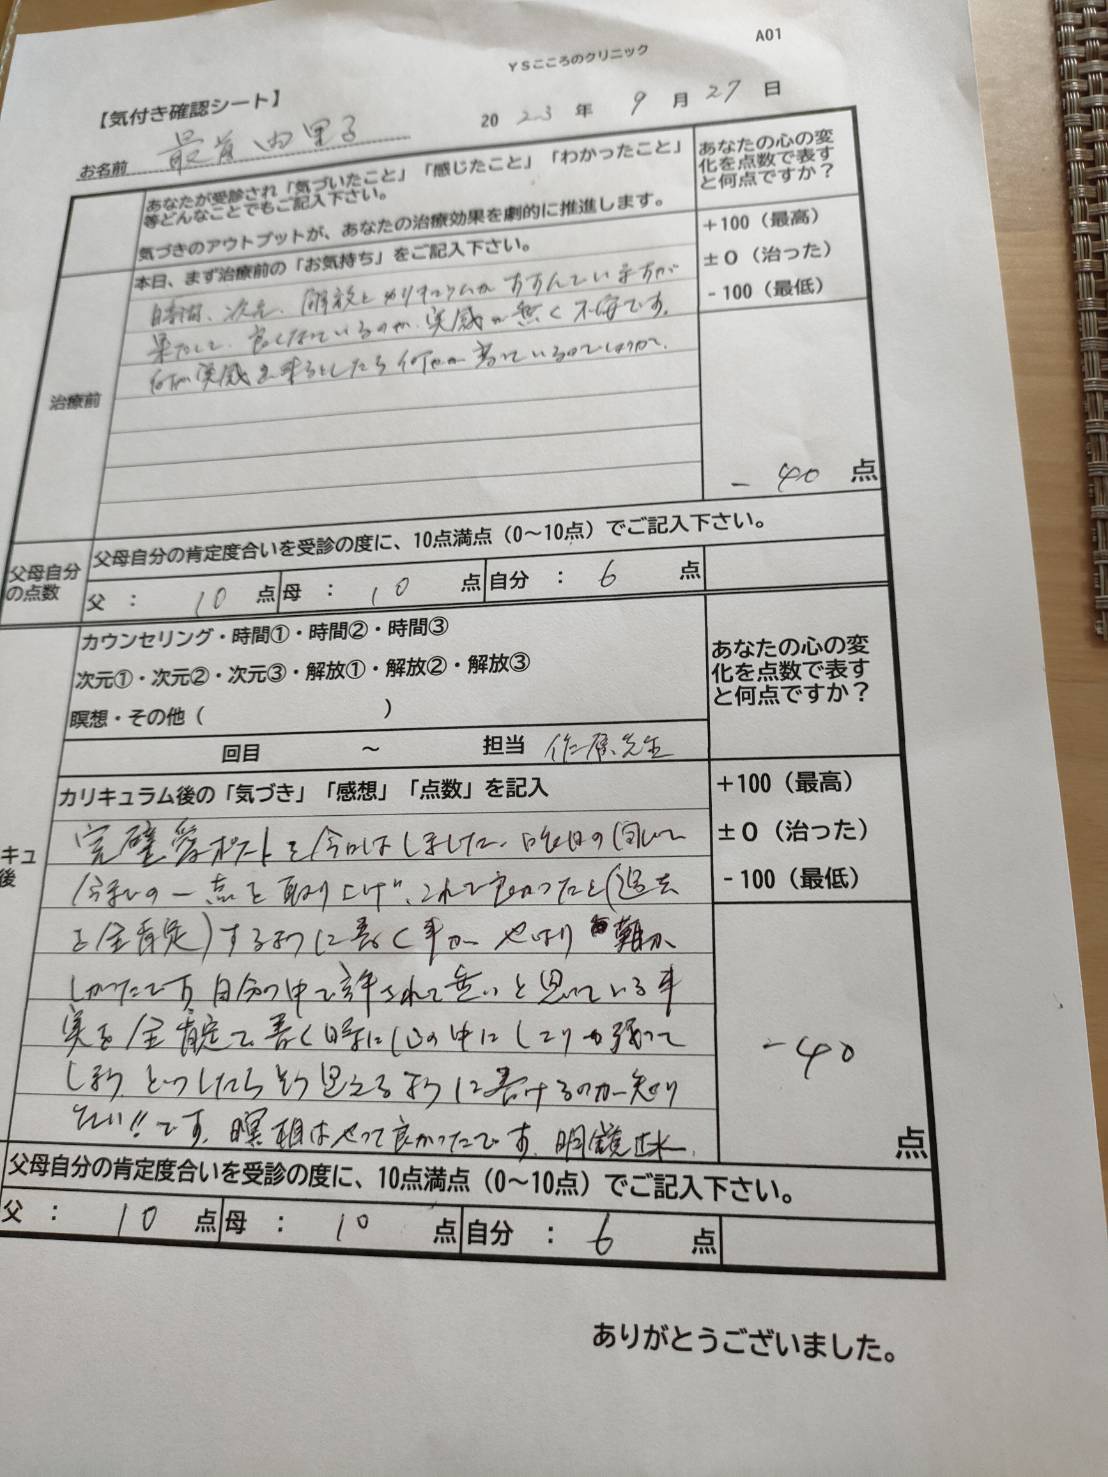 A01
YSこころのクリニック
【気付き確認シート】
2023年 9月27日
お名前 最首由里子
あなたが受診され「気づいたこと」「感じたこと」「わかったこと」
等どんなことでもご記入下さい。
気づきのアウトプットが、あなたの治療効果を劇的に推進します。
あなたの心の変
化を点数で表す
と何点ですか？
本日、まず治療前の「お気持ち」をご記入下さい。
+100（最高）
±0（治った）
-100（最低）
治療前
時間、次元、解放とカリキュラムがすすんでいますが
果たして、良くなっているのか、実感が無く不安です。
何か実感を来るとしたら何が変っているのでしょうか。
-40 点
父母自分
の点数
父母自分の肯定度合いを受診の度に、10点満点（0～10点）でご記入下さい。
父 ： 10 点 母 ： 10 点 自分 ： 6 点
カウンセリング・時間①・時間②・時間③
次元①・次元②・次元③・解放①・解放②・解放③
瞑想・その他（ ）
あなたの心の変
化を点数で表す
と何点ですか？
回目 ～ 担当 佐原先生
キュ
後
カリキュラム後の「気づき」「感想」「点数」を記入
+100（最高）
±0（治った）
-100（最低）
完璧愛ポストを今日はしました。
の一点を取り上げ、これで良かったと(過去
を全肯定)するように書く事が やはり 難か
しかったです 自分の中で許されて無いと思っている事
実を全肯定で書く時に心の中にしこりが残って
しまう、どうしたらそう思えるように書けるのか知り
たい!!です。瞑想はやって良かったです。明鏡止水。
-40
点
父母自分の肯定度合いを受診の度に、10点満点（0～10点）でご記入下さい。
父 ： 10 点 母 ： 10 点 自分 ： 6 点
ありがとうございました。